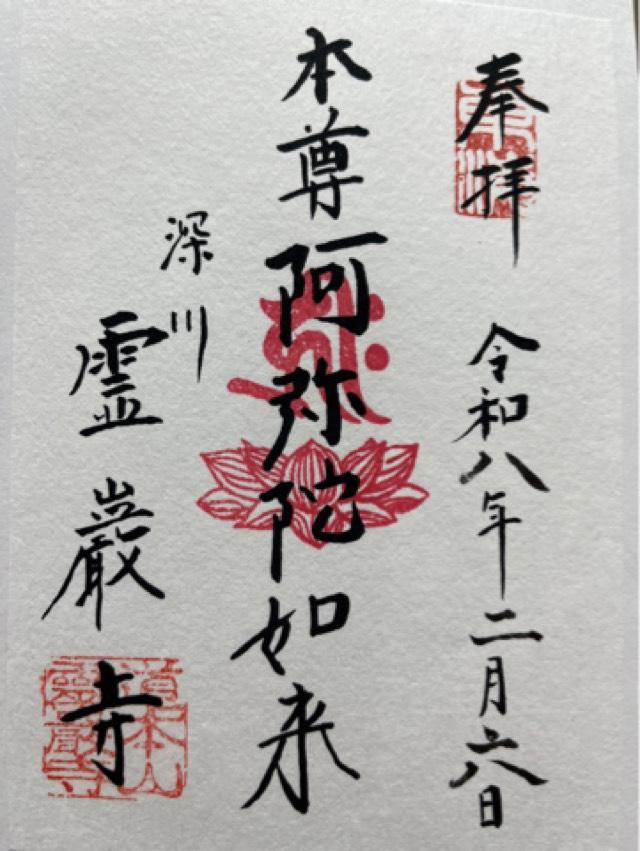 奉拝
令和八年二月六日
本尊阿弥陀如来
深川
霊巌寺